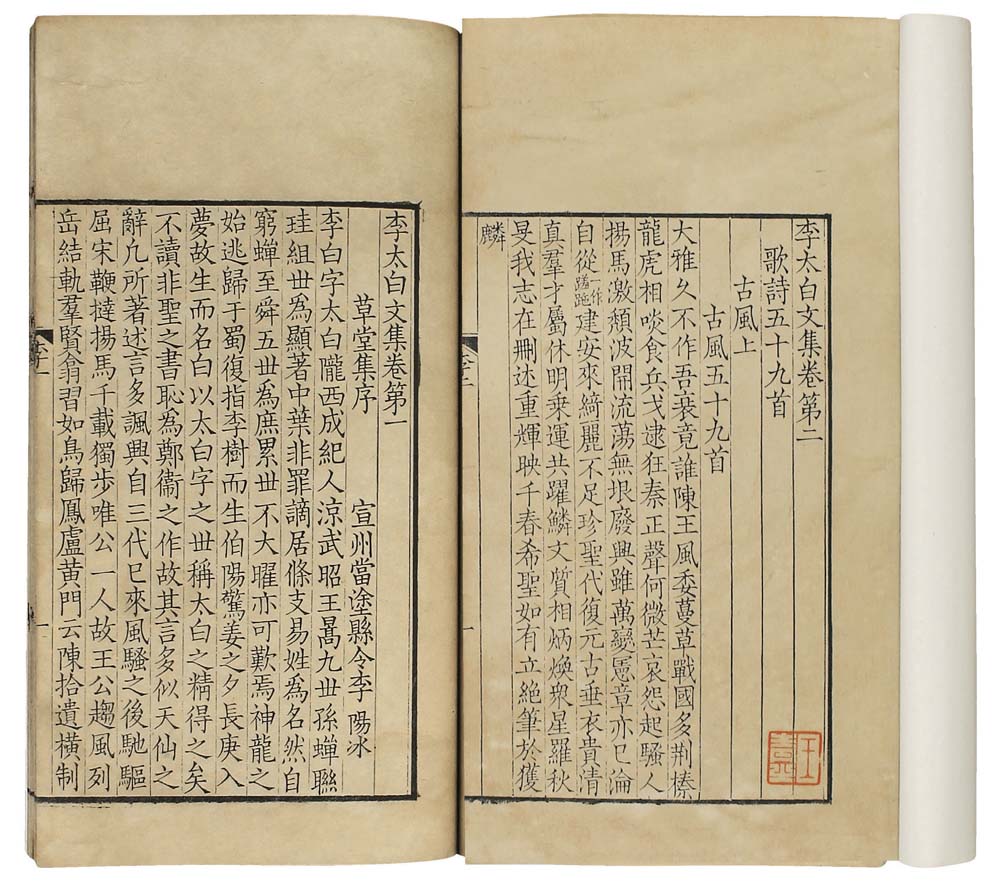 李太白文集卷第二
歌詩五十九首
古風上
古風五十九首
大雅久不作吾衰竟誰陳王風委蔓草戰國多荆榛
龍虎相啖食兵戈逮狂秦正聲何微芒哀怨起騷人
揚馬激頹波開流蕩無垠廢興雖萬變憲章亦已淪
自從一作蹉跎建安來綺麗不足珍聖代復元古垂衣貴清
真羣才屬休明乗運共躍鱗文質相炳煥衆星羅秋
旻我志在刪述重輝映千春希聖如有立絕筆於獲
麟
李二
一
李太白文集卷第一
草堂集序
宣州當塗縣令李陽冰
李白字太白隴西成紀人涼武昭王暠九世孫蟬聯
珪組世爲顯著中葉非罪謫居條支易姓爲名然自
窮蟬至舜五世爲庶累世不大曜亦可歎焉神龍之
始逃歸于蜀復指李樹而生伯陽驚姜之夕長庚入
夢故生而名白以太白字之世稱太白之精得之矣
不讀非聖之書恥爲鄭衞之作故其言多似天仙之
辭凡所著述言多諷興自三代已來風騷之後馳驅
屈宋鞭撻揚馬千載獨步唯公一人故王公趨風列
岳結軌羣賢翕習如鳥歸鳳盧黃門云陳拾遺橫制
李一
一